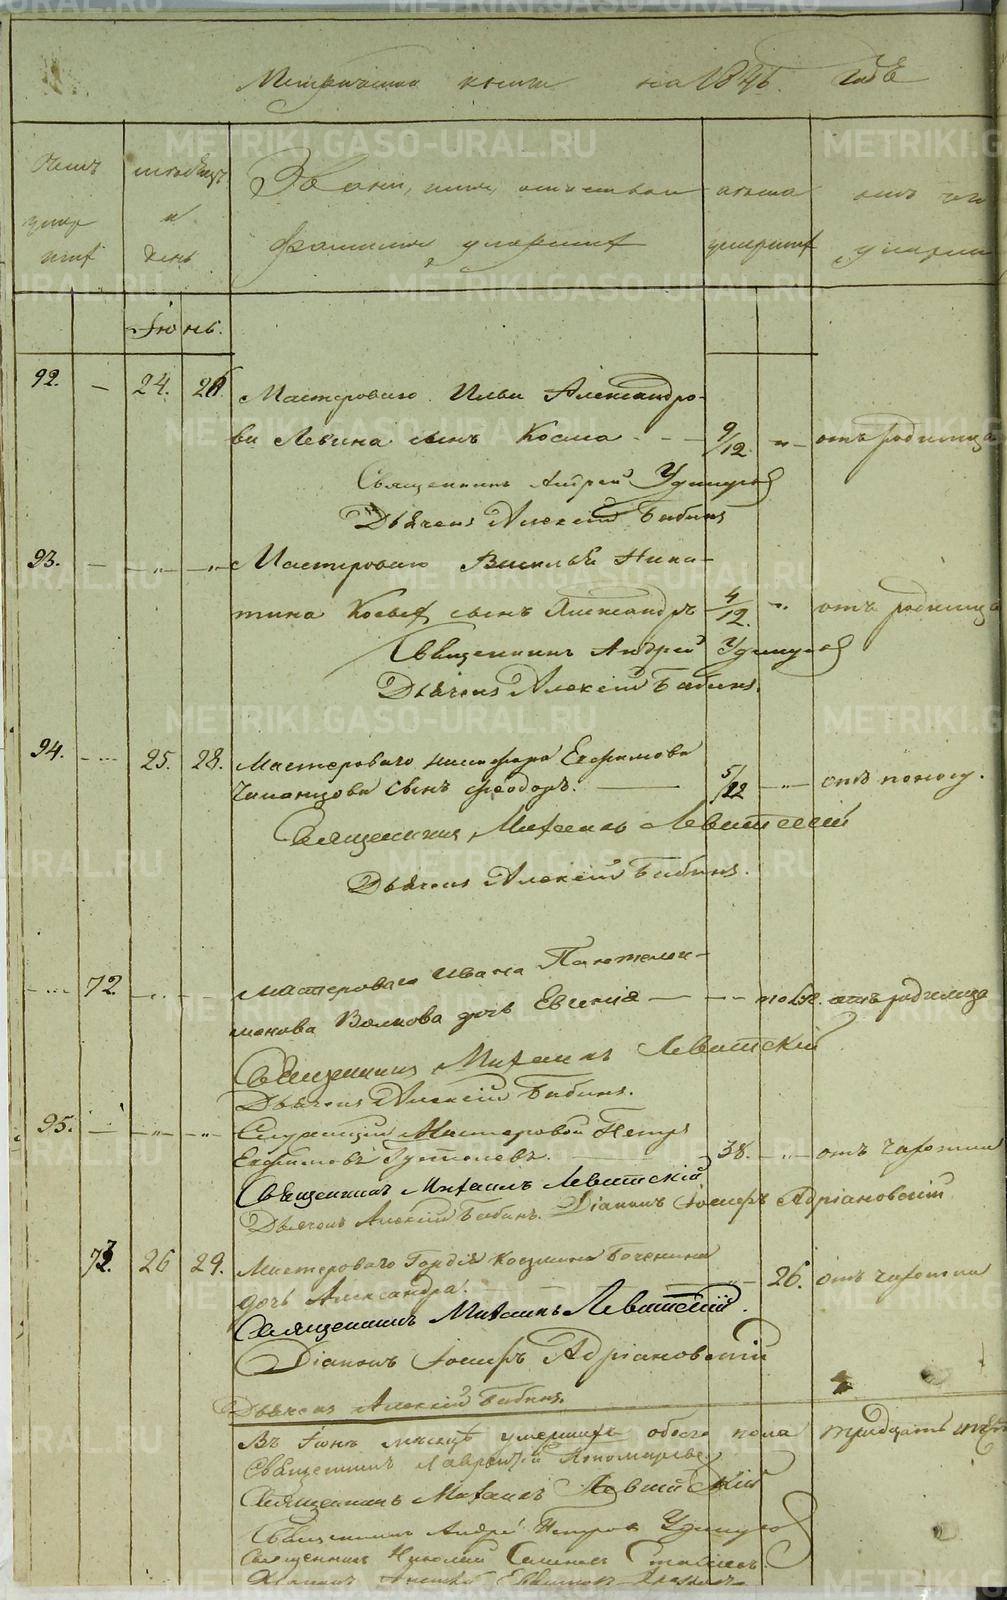 METRIKI.GASO-URAL.RU
Метрическая книга на 1846 годъ
Счетъ умершихъ
мѣсяцъ и день
Званіе, имя, отчество и
фамилія умершихъ
лѣта умершихъ
отъ чего умерли
Іюнь.
92. — 24. 26. Мастероваго Ильи Александро-
ва Левина сынъ Косма - - 9/12. " — отъ родимца
Священникъ Андрей Удинцовъ
Дьячекъ Алексій Бабинъ
93. — " — " — Мастероваго Василья Ники-
тина сынъ Александръ 4/12. " отъ родимца
Священникъ Андрей Удинцовъ
Дьячекъ Алексій Бабинъ.
94. - - - 25. 28. Мастероваго Никифора Ефимова
сынъ Феодоръ. — 5/12 — " — отъ поносу.
Священникъ Михаилъ Левитскій
Дьячекъ Алексій Бабинъ.
- - - 72. Мастероваго Ивана Пантелей-
монова Волкова дочь Евгенія — — - отъ родимца
Священникъ Михаилъ Левитскій
Дьячекъ Алексій Бабинъ.
95. — " — " — Мастеровой Петръ
Ефимовъ — 38. — " — отъ чахотки
Священникъ Михаилъ Левитскій
Дьячекъ Алексій Бабинъ. Діаконъ Іосифъ Адріановскій
73. 26 29. Мастероваго Гордія Козмина
дочь Александра. " — 26. отъ чахотки
Священникъ Михаилъ Левитскій.
Діаконъ Іосифъ Адріановскій
Дьячекъ Алексій Бабинъ.
Въ Іюнѣ мѣсяцѣ умершихъ обоего пола тридцать
Священникъ Лаврентій Пономаревъ
Священникъ Михаилъ Левитскій
Священникъ Андрей Петровъ Удинцовъ
Священникъ Николай
Діаконъ